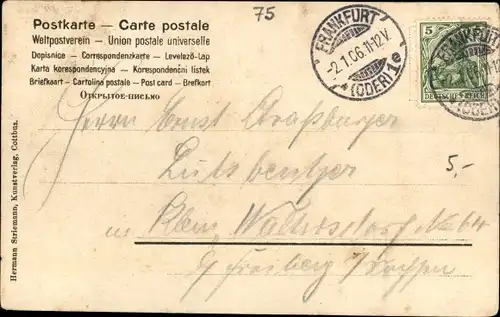 75
Postkarte — Carte postale
Weltpostverein — Union postale universelle
Dopisnice — Correspondenzkarte — Levelező-Lap
Karta korespondencyjna — Korespondenční listek
Briefkaart — Cartolina postale — Post card — Brefkort
Открытое-письмо
FRANKFURT
-2.1.06.11-12V.
*(ODER)1e
5
DEUTSCHES REICH
FRANKFURT
(ODER)
Herrn Ernst Straßburger
Gutsbesitzer
in Klein Waltersdorf No 64
b/ Freiberg i/Sachsen
5,-
Hermann Striemann, Kunstverlag, Cottbus.